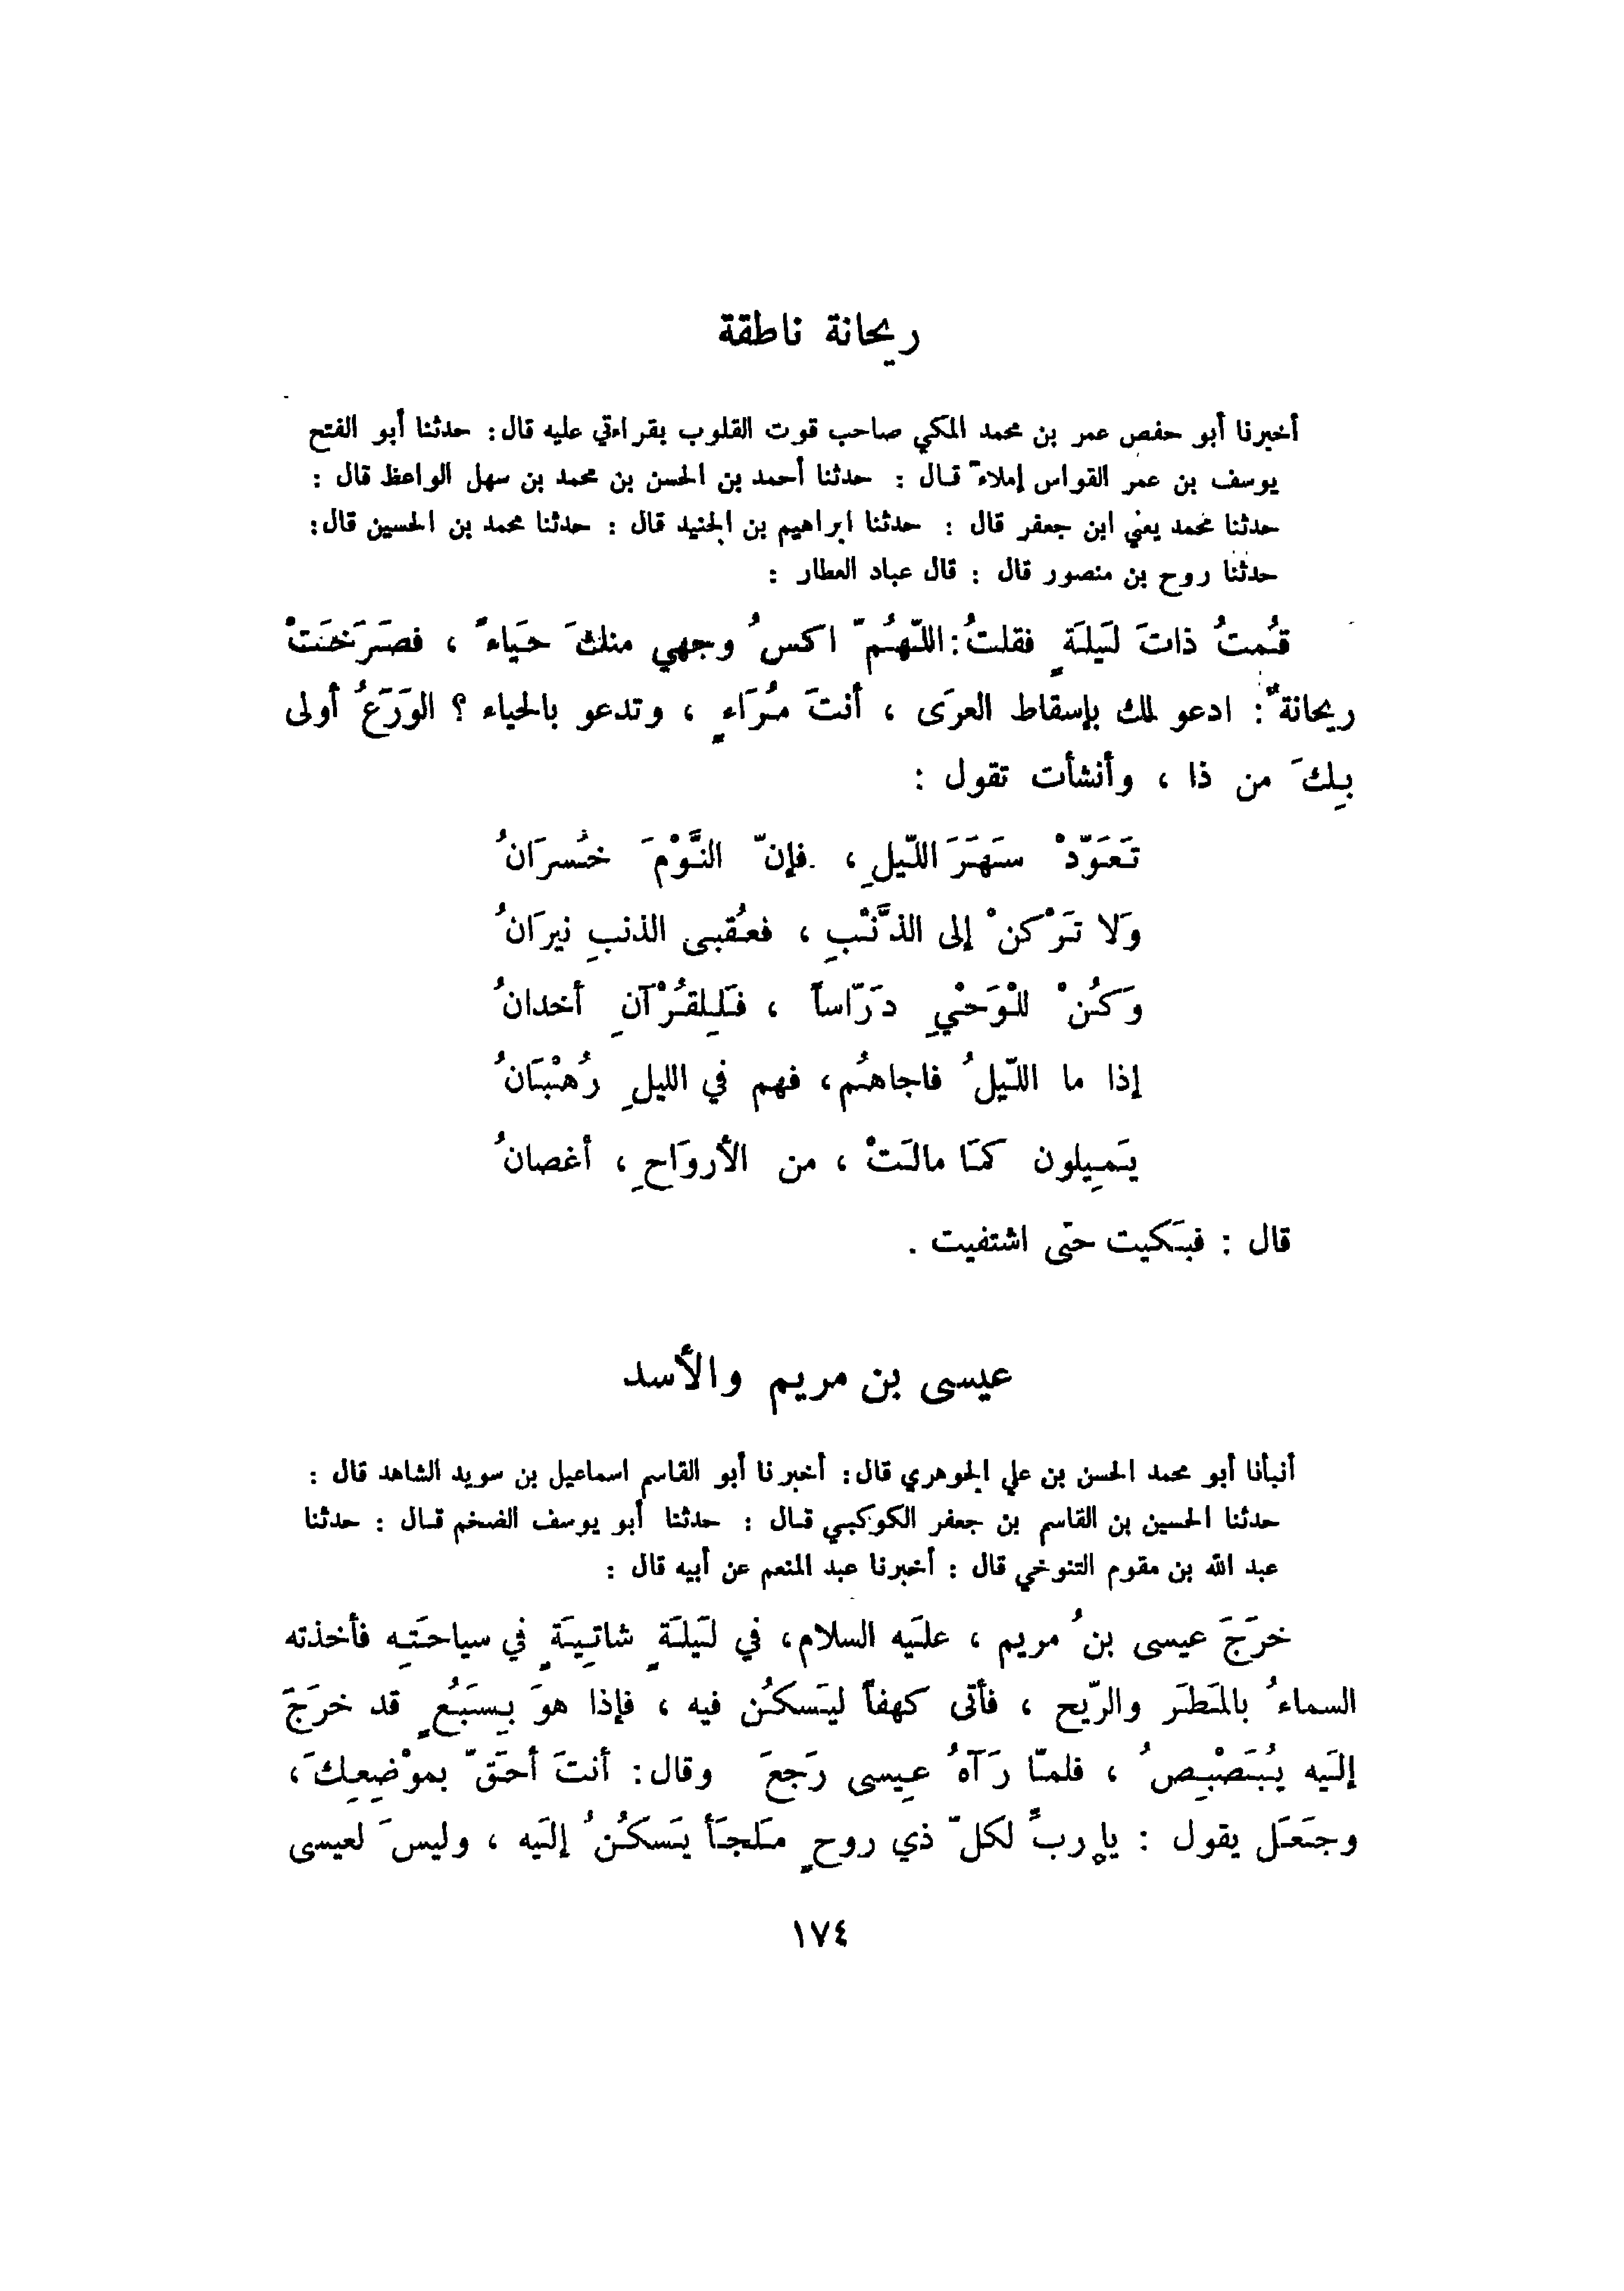 ريحانة ناطقة
أخبرنا أبو حفص عمر بن محمد المكي صاحب قوت القلوب بقراءتي عليه قال: حدثنا أبو الفتح
يوسف بن عمر القواس إملاءً قال : حدثنا أحمد بن الحسن بن محمد بن سهل الواعظ قال :
حدثنا محمد يعني ابن جعفر قال : حدثنا ابراهيم بن الجنيد قال : حدثنا محمد بن الحسين قال:
حدثنا روح بن منصور قال : قال عباد العطار :
قُمتُ ذاتَ لَيلَةٍ فقلتُ: اللّهُمّ اكسُ وجهي منكَ حَيَاءً ، فصَرَخَتْ
ريحانةٌ: ادعو لك بإسقاط العرَى ، أنتَ مُرَاءٍ ، وتدعو بالحياء ؟ الوَرَعُ أولى
بِكَ من ذا ، وأنشأت تقول :
تَعَوّدْ سَهَرَ اللّيلِ ، فإنّ النَّوْمَ خُسرَانُ
وَلا تَرْكنْ إلى الذَّنْبِ ، فعُقبى الذنبِ نيرَانُ
وَكُنْ للْوَحْيِ دَرّاساً ، فَلِلقُرْآنِ أخدانُ
إذا ما اللّيلُ فاجاهُم، فهم في الليلِ رُهْبَانُ
يَمِيلون كمَا مالَتْ ، من الأروَاحِ ، أغصانُ
قال : فبَكيت حتى اشتفيت .
عيسى بن مريم والأسد
أنبأنا أبو محمد الحسن بن علي الجوهري قال: أخبرنا أبو القاسم اسماعيل بن سويد الشاهد قال :
حدثنا الحسين بن القاسم بن جعفر الكوكبي قال : حدثنا أبو يوسف الضخم قال : حدثنا
عبد الله بن مقوم التنوخي قال : أخبرنا عبد المنعم عن أبيه قال :
خرَجَ عيسى بنُ مريم ، علَيه السلام، في لَيلَةٍ شاتِيَةٍ في سياحَتِه فأخذته
السماءُ بالمَطَر والرّيح ، فأتى كهفاً ليَسكُن فيه ، فإذا هوَ بِسَبُعٍ قد خرَجَ
إلَيه يُبَصْبِصُ ، فلمّا رَآهُ عِيسى رَجَعَ وقال: أنتَ أحَقّ بموْضِعِكَ،
وجَعَل يقول : يا ربِّ لكلّ ذي روحٍ مَلجَأ يَسكُنُ إلَيه ، وليسَ لعيسى
١٧٤